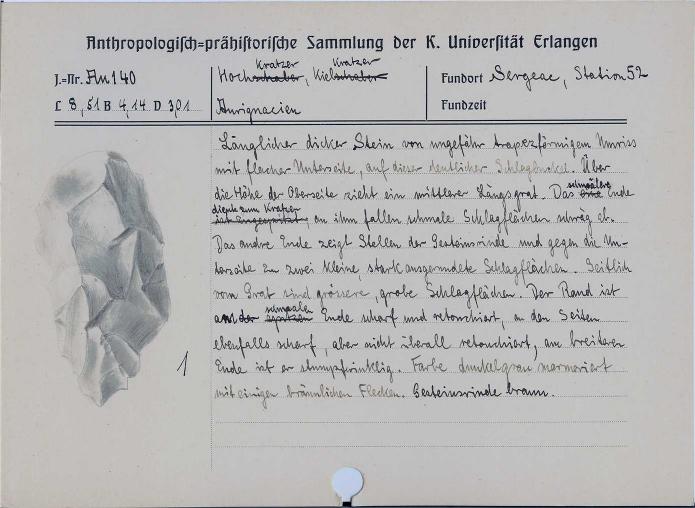 Anthropologisch=prähistorische Sammlung der K. Universität Erlangen
J.=Nr. An 140
L 8,51 B 4,14 D 3,01
Kratzer Kratzer
Hochschaber, Kielschaber
Aurignacien
Fundort Sergeac, Station 52
Fundzeit
Länglicher dicker Stein von ungefähr trapezförmigem Umriss
mit flacher Unterseite, auf dieser deutlicher Schlagbuckel. Über
die Höhe der Oberseite zieht ein mittlerer Längsgrat. Das schmälere Ende
dient zum Kratzer
ist zugespitzt, an ihm fallen schmale Schlagflächen schräg ab.
Das andre Ende zeigt Stellen der Gesteinsrinde und gegen die Un-
terseite zu zwei kleine, stark ausgerundete Schlagflächen. Seitlich
vom Grat sind grössere, grobe Schlagflächen. Der Rand ist
schmalen
an der spitzen Ende scharf und retouchiert, an den Seiten
ebenfalls scharf, aber nicht überall retouchiert, am breiteren
Ende ist er stumpfwinklig. Farbe dunkelgrau marmoriert
mit einigen bräunlichen Flecken. Gesteinsrinde braun.
1